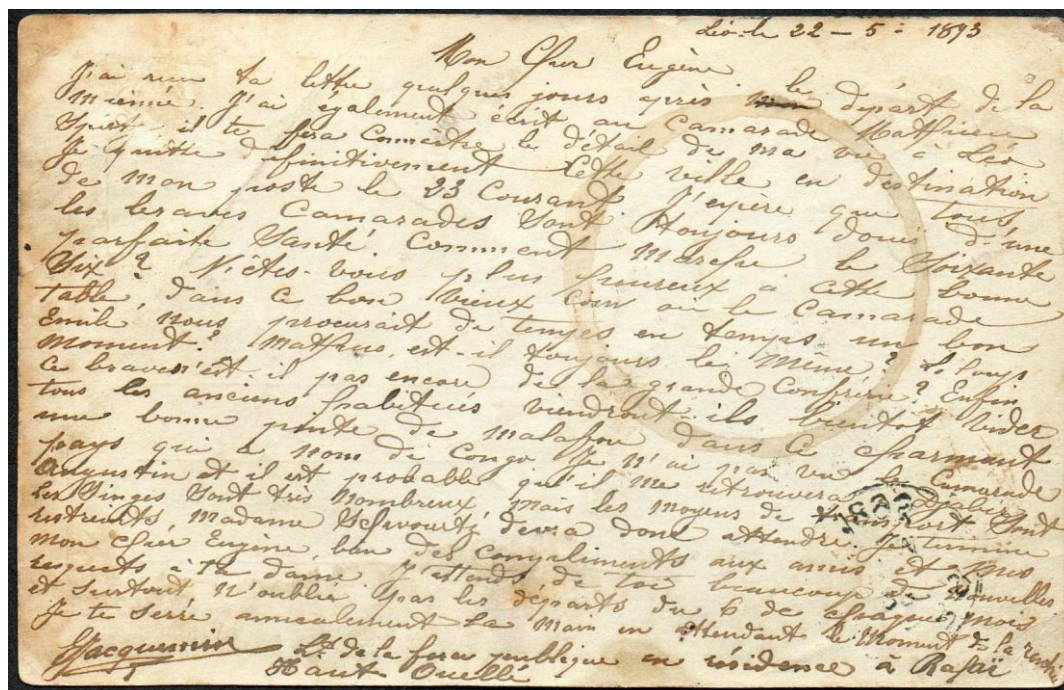 Léo-le 22 - 5 - 1893
Mon Cher Eugène
J'ai reçu ta lettre quelques jours après le départ de la
mienne. J'ai également écrit au Camarade Mathieu
il te fera connaître le détail de ma vie à Léo
Je quitte définitivement Cette ville en destination
de mon poste le 23 Courant. J'espère que tous
les braves Camarades Sont toujours d'une
parfaite Santé. Comment marche le Soixante
Six? N'êtes-vous plus heureux à cette bonne
table, dans ce bon vieux Coin où le Camarade
Emile nous procurait de temps en temps un bon
moment? est-il toujours le même?
Ce brave n'est-il pas encore de la grande Confrérie? Enfin
tous les anciens habitués viendront-ils bientôt vider
une bonne pinte de malafou dans ce charmant
pays qui a nom de Congo. Je n'ai pas vu le Camarade
Augustin et il est probable qu'il me retrouvera
Les Singes Sont très nombreux, mais les moyens de transport Sont
restreints, madame devra donc attendre. Je termine
mon cher Eugène, bon des Compliments aux amis et mes
respects à ta dame. J'attends de toi beaucoup de nouvelles
et surtout n'oublie pas les départs du 6 de chaque mois
Je te Serre amicalement la main en attendant le moment de la
Jacquemin Lt de la force publique en résidence à Rafaï
Haut Ouellé